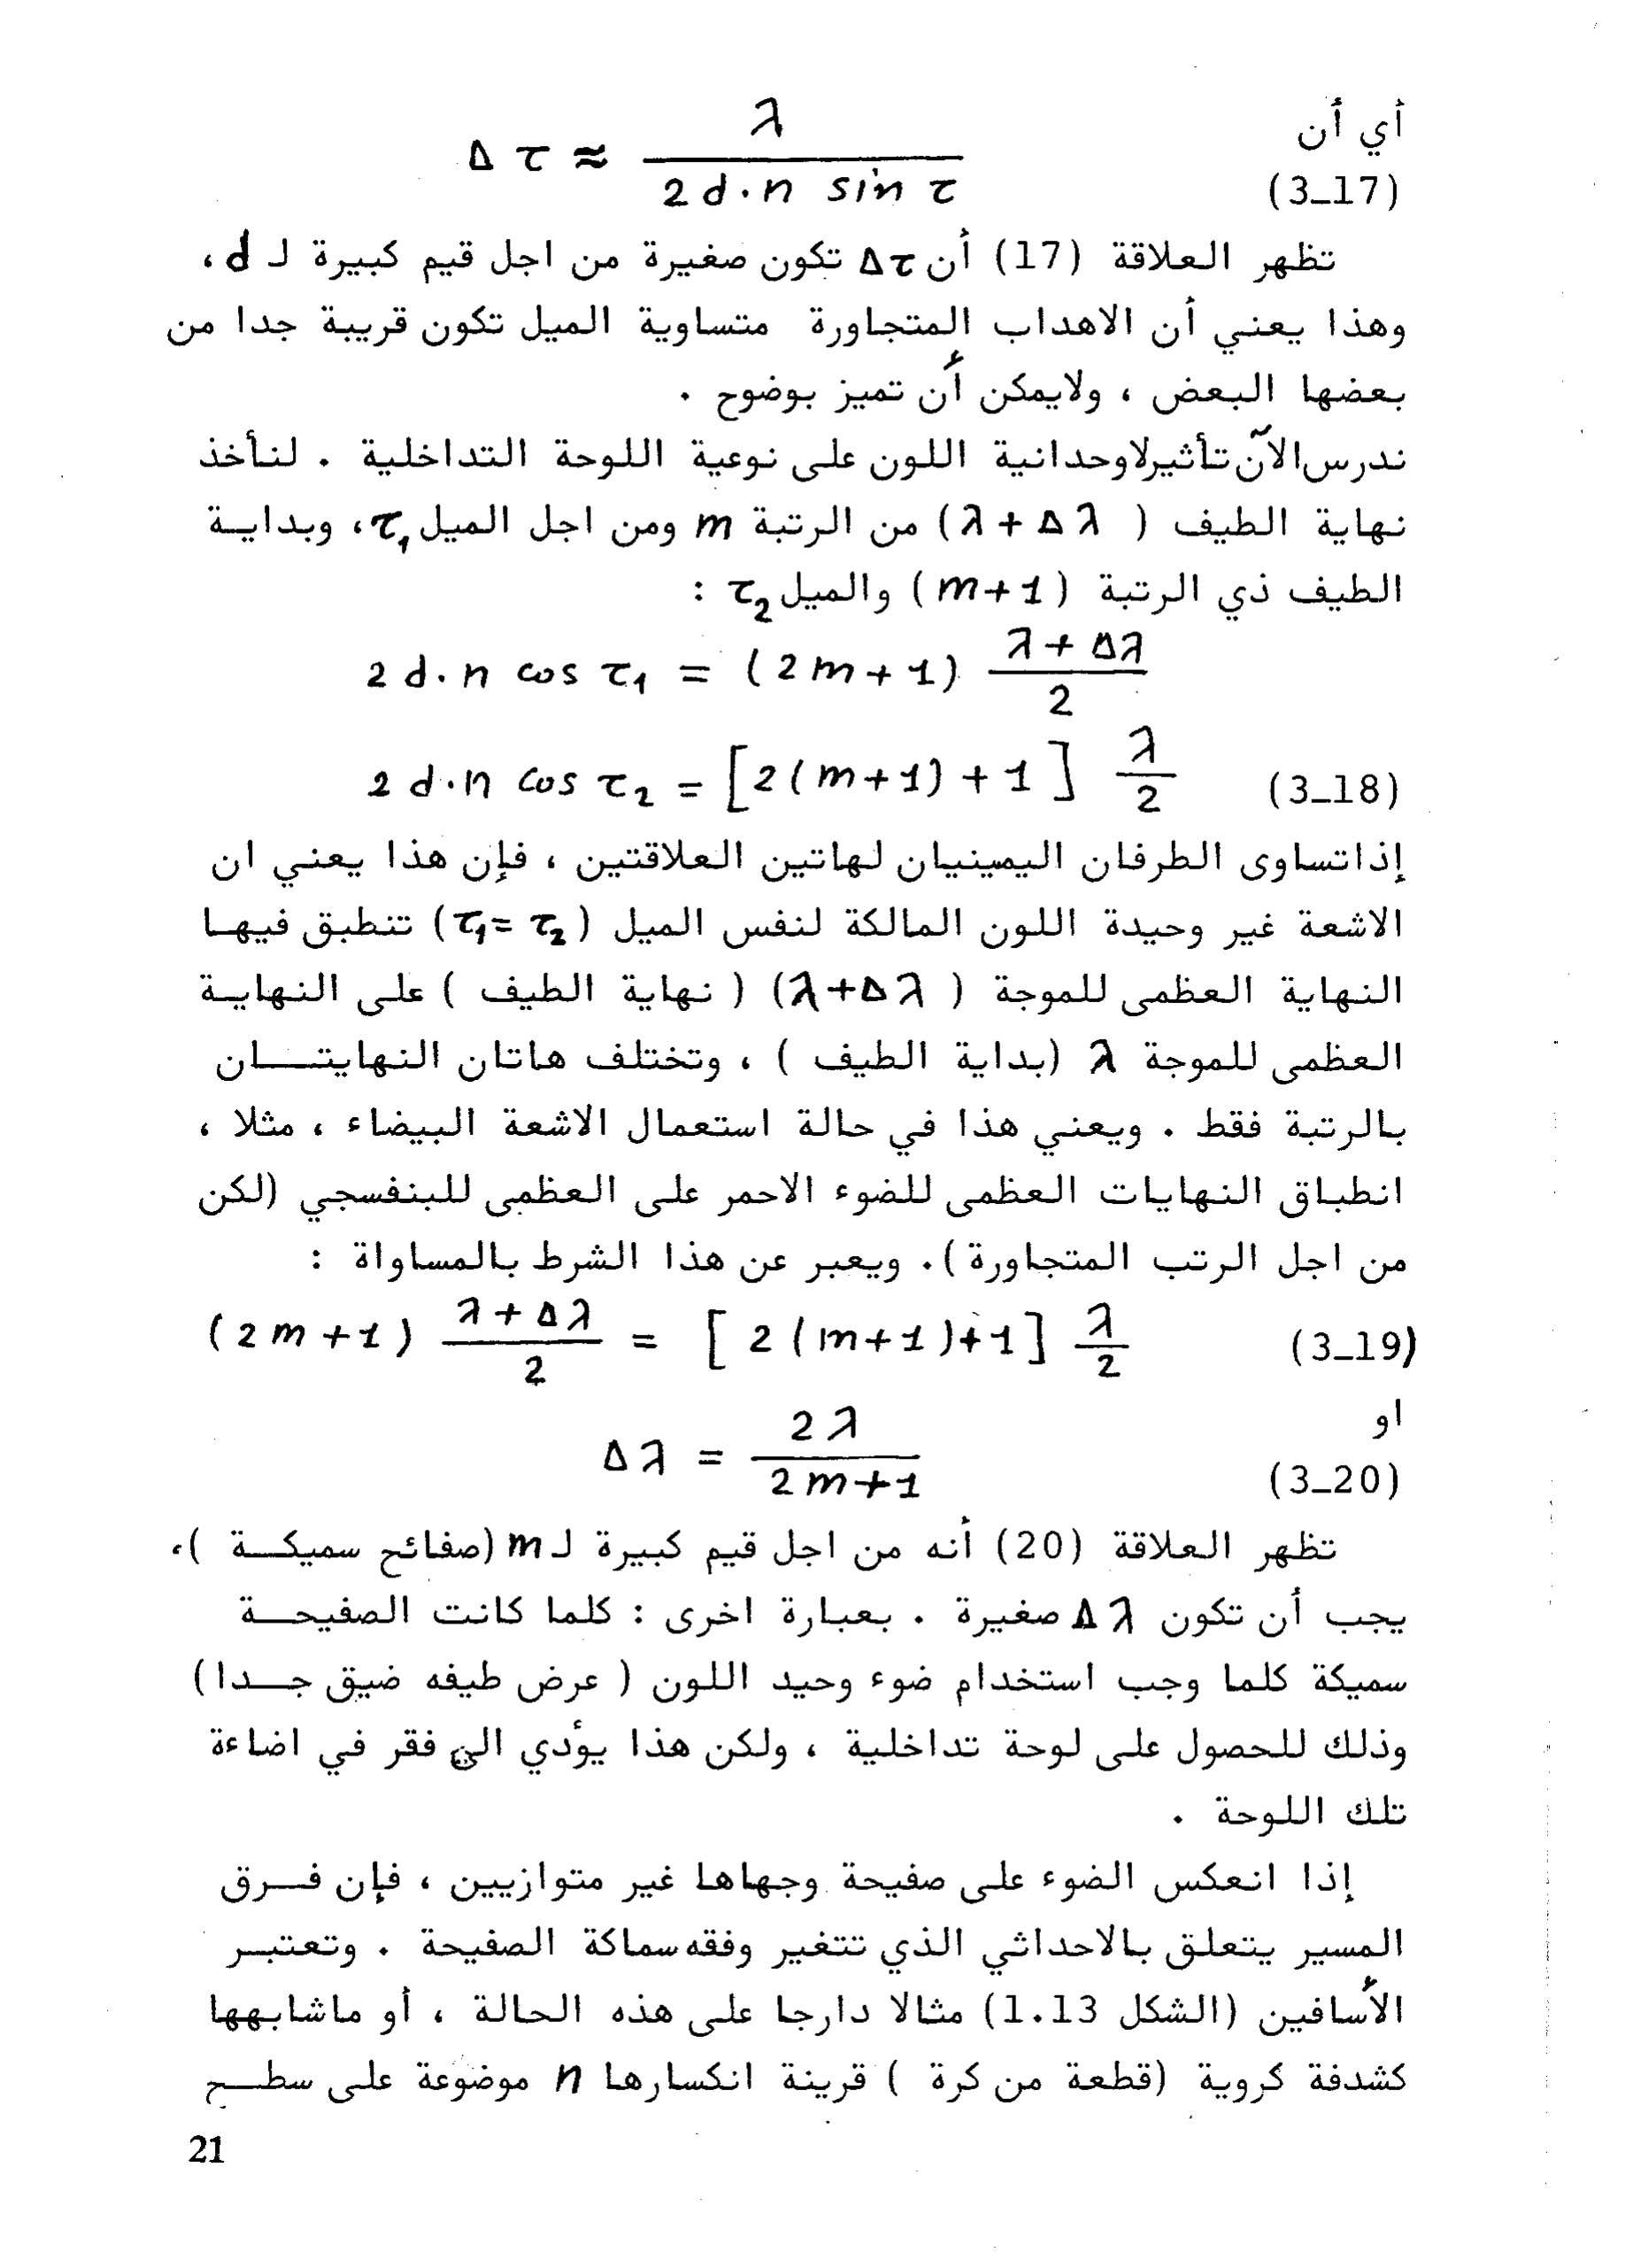 أي أن
Δτ ≈ λ / (2d·n sin τ) (3_17)
تظهر العلاقة (17) أن Δτ تكون صغيرة من اجل قيم كبيرة لـ d،
وهذا يعني أن الاهداب المتجاورة متساوية الميل تكون قريبة جدا من
بعضها البعض ، ولايمكن أن تميز بوضوح .
ندرس الآن تأثير لاوحدانية اللون على نوعية اللوحة التداخلية . لنأخذ
نهاية الطيف (λ+Δλ) من الرتبة m ومن اجل الميل τ₁، وبدايـة
الطيف ذي الرتبة (m+1) والميل τ₂ :
2d·n cos τ₁ = (2m+1) (λ+Δλ)/2
2d·n cos τ₂ = [2(m+1)+1] λ/2 (3_18)
إذا تساوى الطرفان اليمينيان لهاتين العلاقتين ، فإن هذا يعني ان
الاشعة غير وحيدة اللون المالكة لنفس الميل (τ₁= τ₂) تنطبق فيهـا
النهاية العظمى للموجة (λ+Δλ) ( نهاية الطيف ) على النهايـة
العظمى للموجة λ (بداية الطيف ) ، وتختلف هاتان النهايتـــان
بالرتبة فقط . ويعني هذا في حالة استعمال الاشعة البيضاء ، مثلا ،
انطباق النهايات العظمى للضوء الاحمر على العظمى للبنفسجي (لكن
من اجل الرتب المتجاورة ). ويعبر عن هذا الشرط بالمساواة :
(2m+1) (λ+Δλ)/2 = [2(m+1)+1] λ/2 (3_19)
او
Δλ = 2λ / (2m+1) (3_20)
تظهر العلاقة (20) أنه من اجل قيم كبيرة لـ m (صفائح سميكــة )،
يجب أن تكون Δλ صغيرة . بعبارة اخرى : كلما كانت الصفيحــة
سميكة كلما وجب استخدام ضوء وحيد اللون ( عرض طيفه ضيق جــدا)
وذلك للحصول على لوحة تداخلية ، ولكن هذا يؤدي الى فقر في اضاءة
تلك اللوحة .
إذا انعكس الضوء على صفيحة وجهاها غير متوازيين ، فإن فــرق
المسير يتعلق بالاحداثي الذي تتغير وفقه سماكة الصفيحة . وتعتبـر
الأسافين (الشكل 1.13) مثالا دارجا على هذه الحالة ، أو ماشابهها
كشدفة كروية (قطعة من كرة ) قرينة انكسارها n موضوعة على سطــح
21